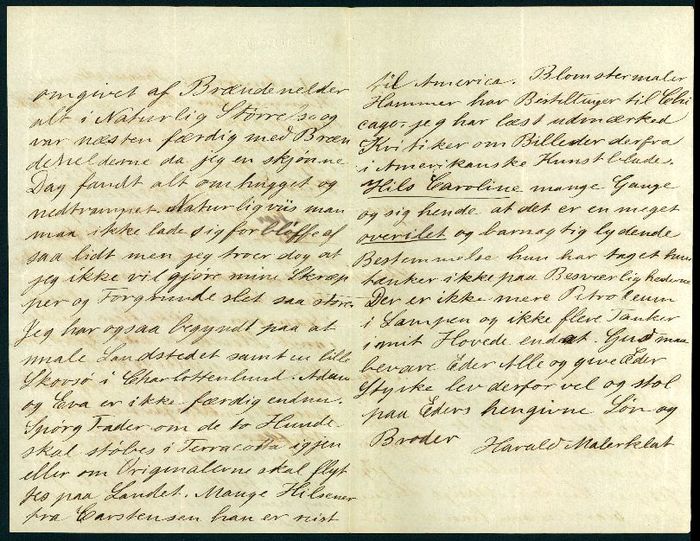 omgivet af Brændenelder
alt i Naturlig Størrelse og
var næsten færdig med Bræn
denelderne da jeg en skjønne
Dag fandt alt omhugget og
nedtrampet. Naturligviis man
maa ikke lade sig forbløffe af
saa lidt men jeg troer dog at
jeg ikke vil gjøre mine Skræp
per og Forgrunde slet saa store.
Jeg har ogsaa begyndt paa at
male Landstedet samt en lille
Skovsø i Charlottenlund. Adam
og Eva er ikke færdig endnu.
Spørg Fader om de to Hunde
skal støbes i Terracotta igjen
eller om Originalerne skal flyt
tes paa Landet. Mange Hilsener
fra Carstensen han er reist
til America. Blomstermaler
Hammer har Bestillinger til Chi
cago. jeg har læst udmærked
Kritiker om Billeder derfra
i Amerikanske Kunstblade.
Hils Caroline mange Gange
og sig hende at det er en meget
overilet og barnagtig lydende
Bestemmelse hun har taget hun
tænker ikke paa Besværlighederne
Der er ikke mere Petroleum
i Lampen og ikke flere Tanker
i mit Hovede endat. Gud maa
bevare Eder Alle og give Eder
Styrke lev derfor vel og stol
paa Eders hengivne Søn og
Broder
Harald Malerklat